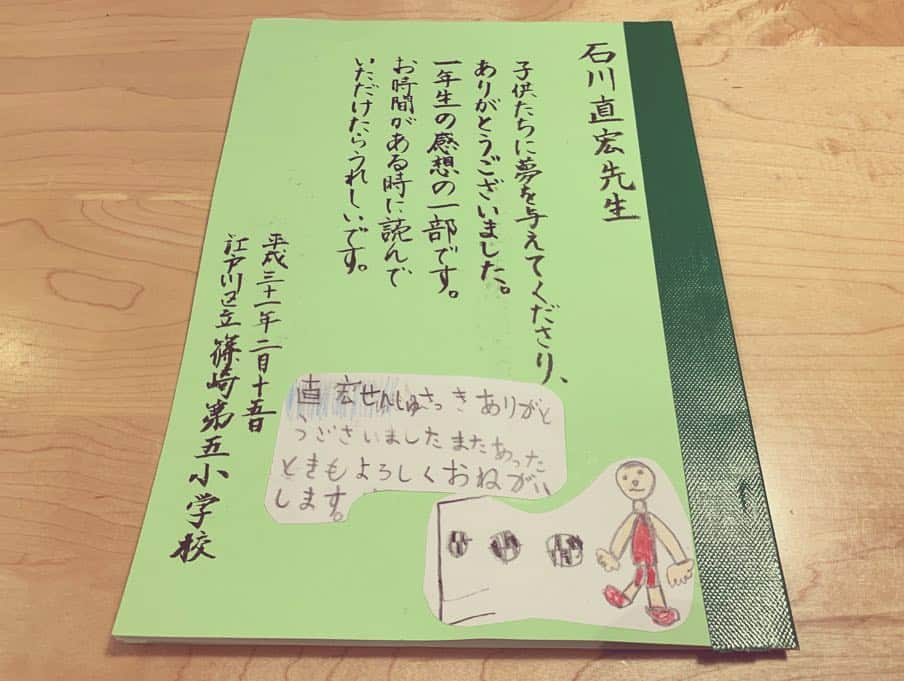 石川直宏先生
子供たちに夢を与えてくださり、
ありがとうございました。
一年生の感想の一部です。
お時間がある時に読んで
いただけたらうれしいです。
平成三十一年二月十五日
江戸川区立篠崎第五小学校
直宏せんしゅさっきありがと
うございましたまたあった
ときもよろしくおねがい
します。